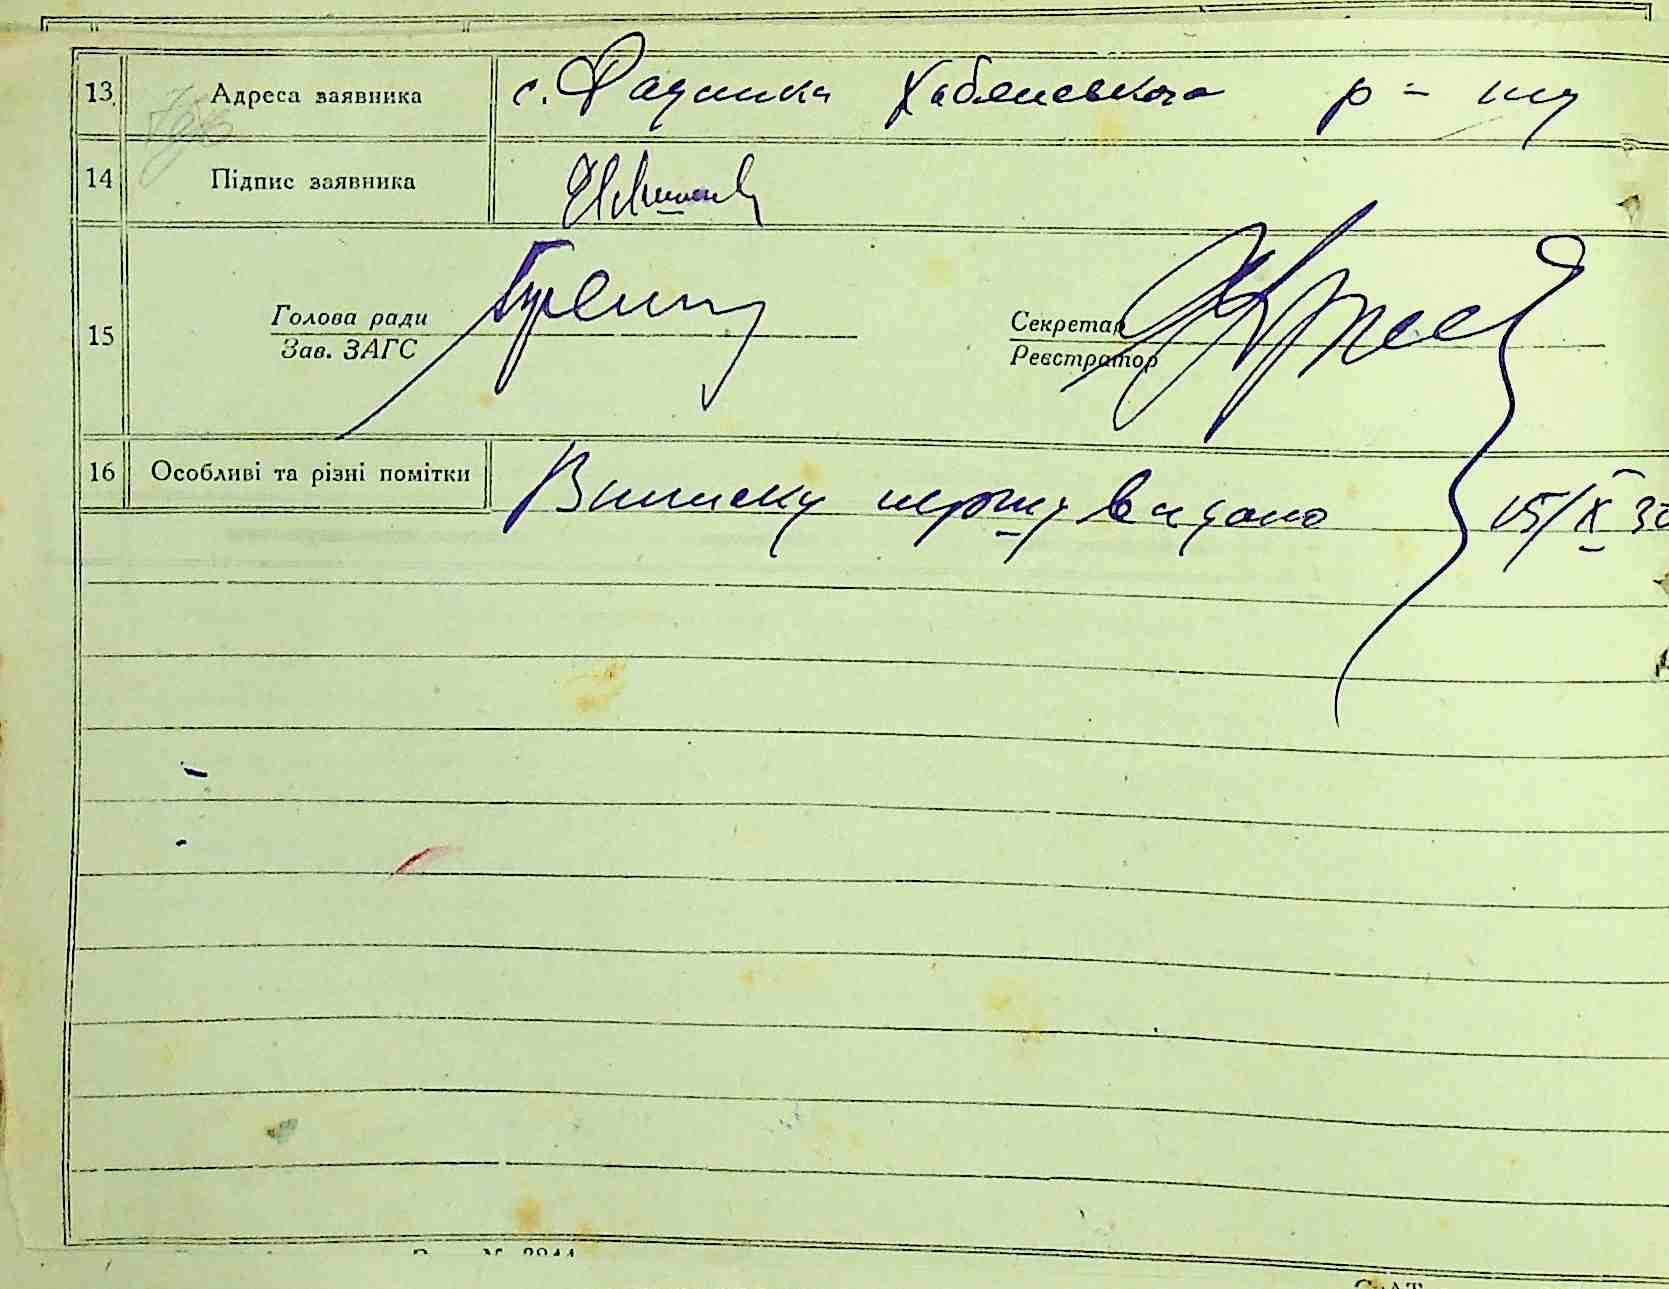 13 Адреса заявника с. Хабленського р-ну
14 Підпис заявника
15 Голова ради
Зав. ЗАГС
Секретар
Реєстратор
16 Особливі та різні помітки Виписку першу видано 15/IX 3